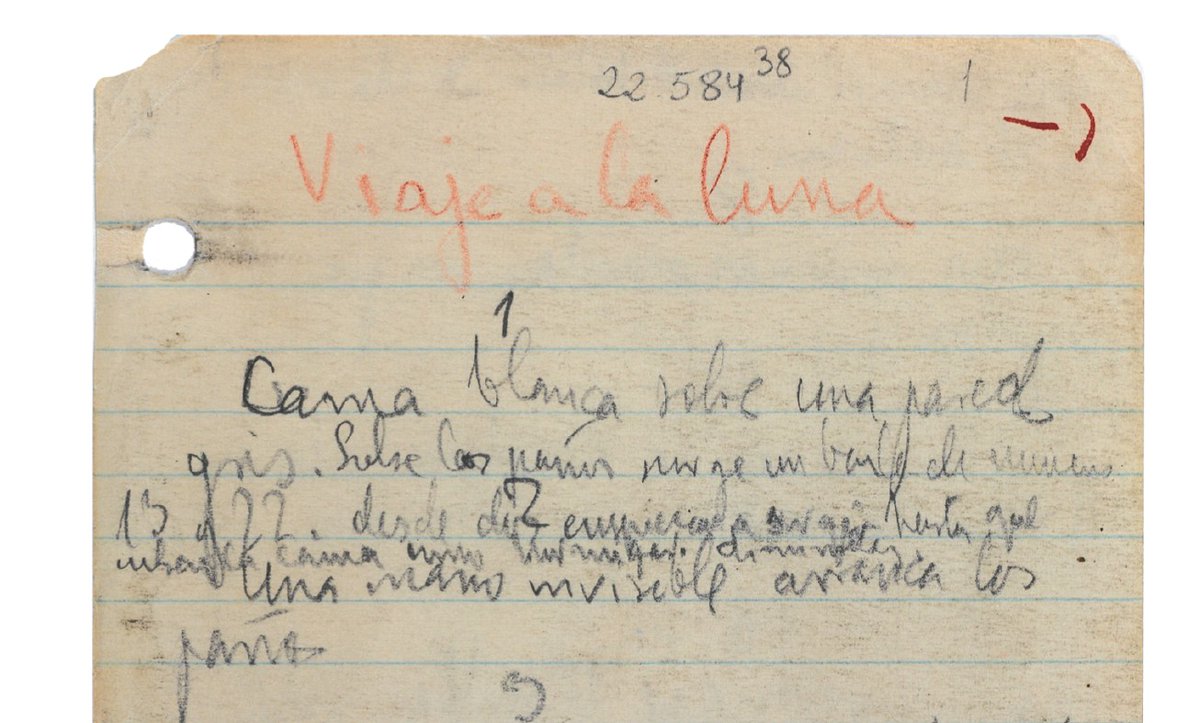 22.584 38
1
Viaje a la luna
1
Cama blanca sobre una pared
gris. Sobre los paños surge un baile de numeros
13 y 22. desde dos empiezan a surgir hasta que
cubren la cama como hormigas diminutas.
Una mano invisible arranca los
paños
2